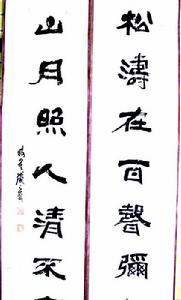 松濤在百聲彌
山月照人清不